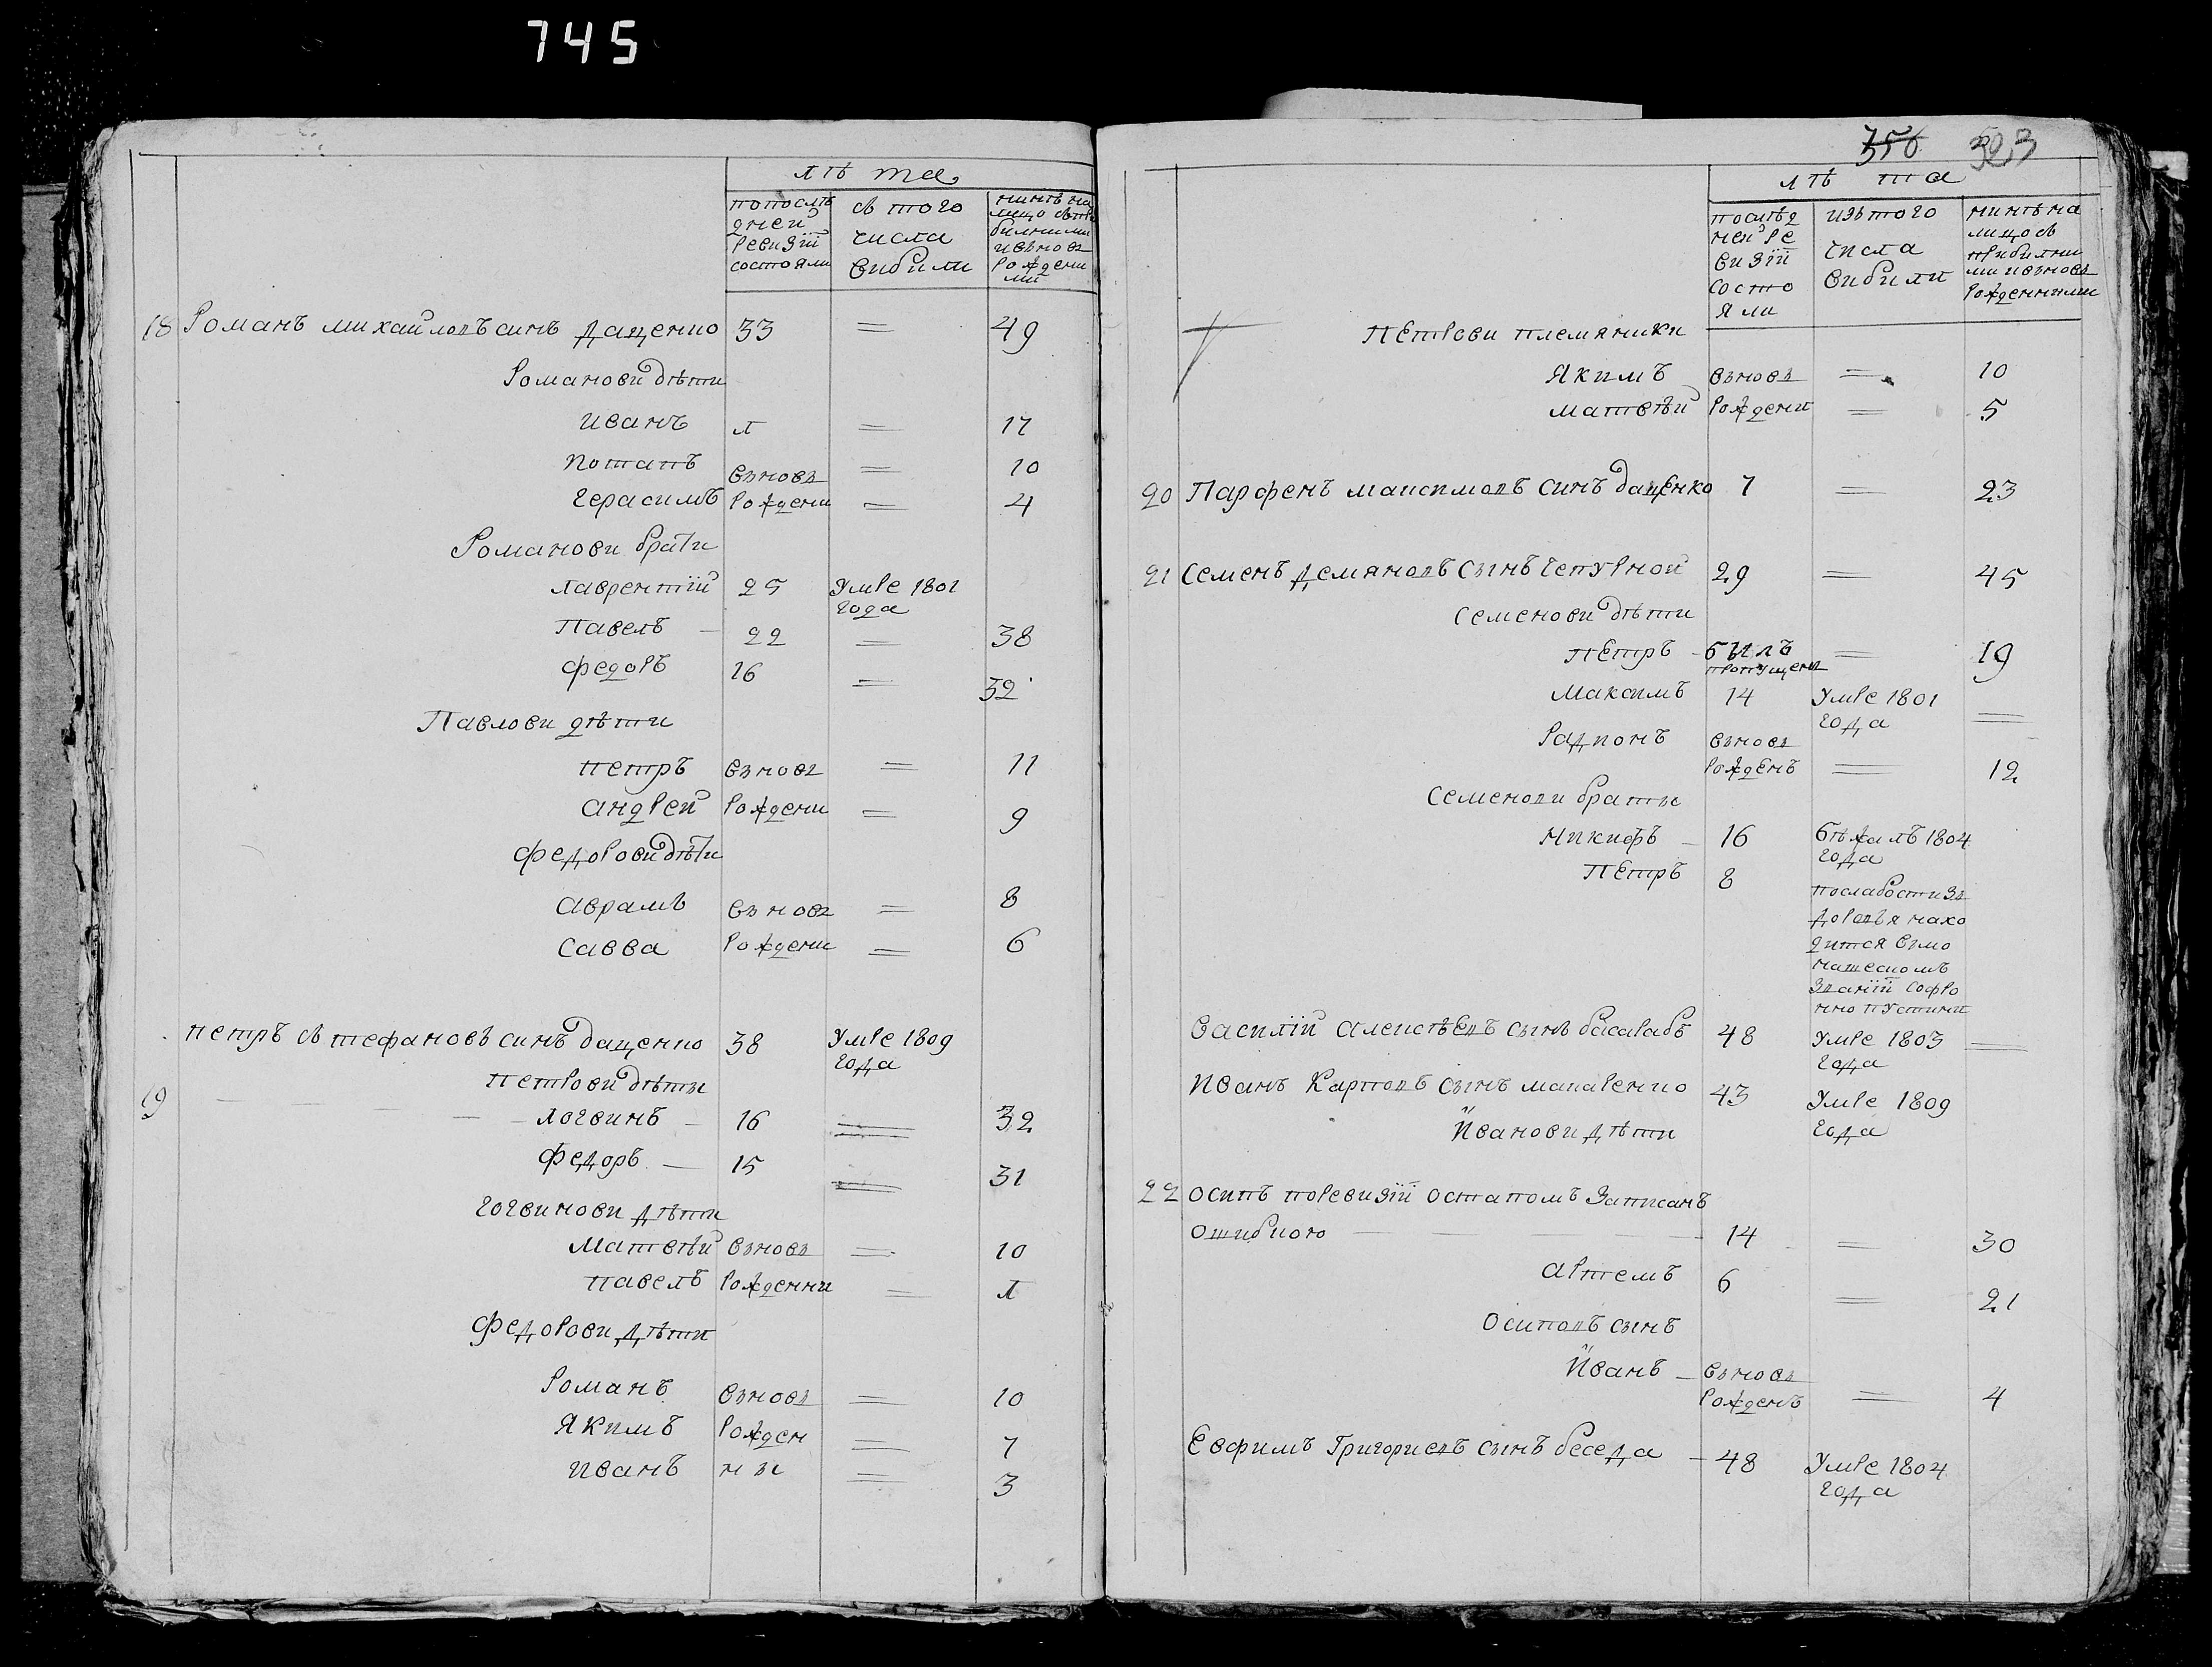 745
лѣ та
попослѣ
дней
ревизіи
состояли
съ того
числа
вибили
нинѣ на
лицо съ при
билими
ивьновь
рождени
ми
18 Романъ михайловъ синъ Дащенко 33 = 49
Романови дѣти
иванъ 1 = 17
потапъ вьновь = 10
герасимъ рождени = 4
Романови братя
лаврентій 25 Умре 1801
года
павелъ 22 = 38
федоръ 16 = 32
Павлови дѣти
петръ вьновь = 11
андрей рождени = 9
федорови дѣти
аврамъ вьновь = 8
савва рождени = 6
петръ стефановъ синъ дащенко 38 Умре 1809
года
петрови дѣты
19 логвинъ 16 = 32
федоръ 15 = 31
логвинови дѣти
Матвѣй вьновь = 10
павелъ рожденни = 1
федорови дѣти
Романъ вьновь = 10
Якимъ рожден = 7
иванъ ны = 3
356 323
лѣ та
послѣд
ней ре
визіи
состо
яли
изьтого
числа
вибили
нинѣ на
лицо съ
прибилни
ми ивьновь
рожденними
петрови племяники
Якимъ вьновь = 10
Матвѣй рождени = 5
20 Парфенъ максимовъ синъ дащенко 7 = 23
21 Семенъ демяновъ сынъ чепурной 29 = 45
семенови дѣти
петръ былъ = 19
пропущенъ
Максимъ 14 Умре 1801
года =
Радионъ вьновь
рожденъ = 12
семенови браты
Никифъ 16 бѣжалъ 1804
года
петръ 8
послабости зь
доровья нахо
дится вьмо
нашескомъ
званіи софро
нио пустини
василій алексѣевъ сынъ басарабъ 48 Умре 1803 =
года
иванъ Карповъ сынъ макаренко 43 Умре 1809
года
ивановидѣти
22 осипъ поревизіи остапомъ записанъ
ошибкою 14 = 30
артемъ 6 = 21
осиповъ сынъ
иванъ вьновь
рожденъ = 4
Евфимъ Григориевъ сынъ беседа 48 Умре 1804
года